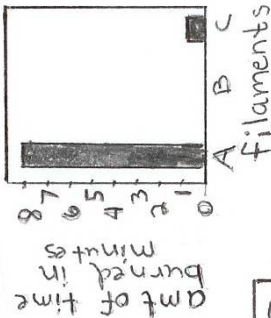 amt of time
burned in
minutes
8
7
6
5
4
3
2
1
0
A B C
Filaments